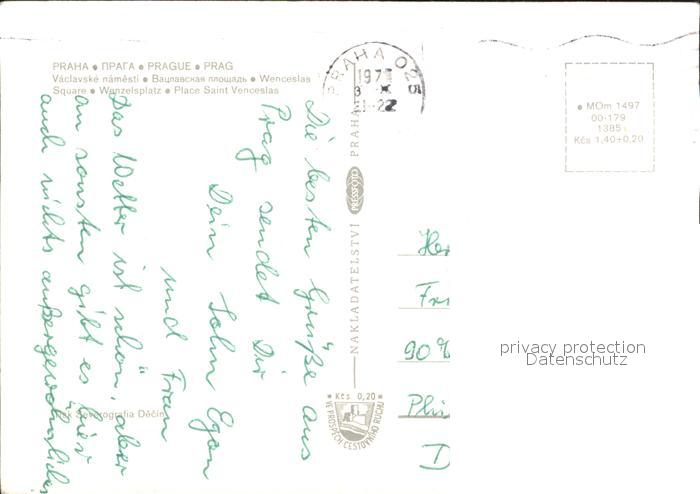 PRAHA ● ПРАГА ● PRAGUE ● PRAG
Václavské náměstí ● Вацлавская площадь ● Wenceslas
Square ● Wenzelsplatz ● Place Saint Venceslas
PRAHA 025
● MOm 1497
00-179
1385
Kčs 1,40+0,20
Die besten Grüße aus
Prag sendet Dir
Dein Sohn Egon
und Frau
Das Wetter ist schön, aber
an sonsten gibt es hier
auch nichts außergewöhnliches
NAKLADATELSTVÍ PRESSFOTO PRAHA
privacy protection
Datenschutz
Kčs 0,20
VE PROSPĚCH CESTOVNÍHO RUCHU
Tisk Severografia Děčín